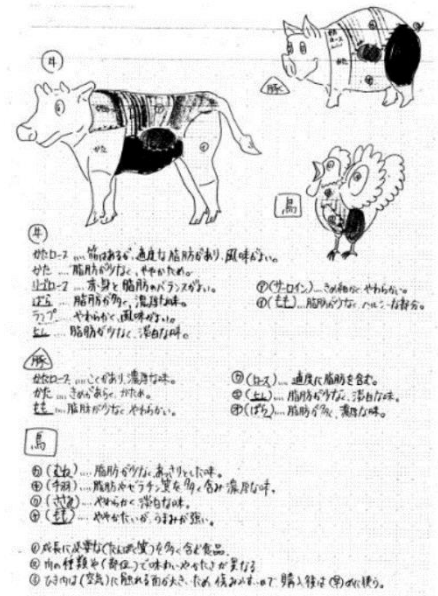 牛
かた
豚
かた
鳥
牛
かたロース....筋はあるが、適度な脂肪があり、風味がよい。
かた ....脂肪が少なく、ややかため。
リブロース....赤身と脂肪のバランスがよい。
ばら ....脂肪が多く、濃厚な味。
ランプ....やわらかく、風味がよい。
ヒレ ....脂肪が少なく、淡白な味。
(サーロイン)....きめ細かく、やわらかい。
(もも)....脂肪が少なく、ヘルシーな部分。
豚
かたロース....こくがあり、濃厚な味。
かた ....きめがあらく、かため。
もも ....脂肪が少なく、やわらかい。
(ロース)....適度に脂肪を含む。
(ヒレ)....脂肪が少なく、淡白な味。
(ばら)....脂肪が多く、濃厚な味。
鳥
(むね)....脂肪が少なく、あっさりとした味。
(手羽)....脂肪やゼラチン質を多く含み、濃厚な味。
(ささみ)....やわらかく、淡白な味。
(もも)....ややかたいが、うまみが強い。
成長に必要な(たんぱく質)を多く含む食品。
肉の種類や(部位)で味わいやかたさが異なる
ひき肉は(空気)に触れる面が大きいため、傷みやすいので、購入後は(早)めに使う。